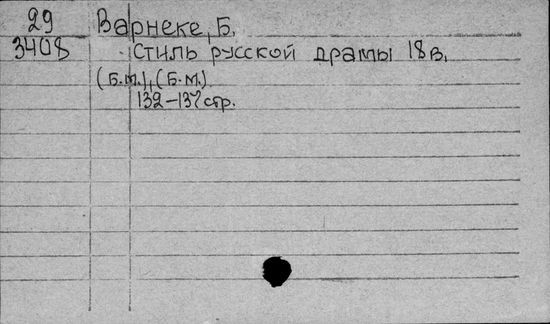 29 Варнеке, Б.
3408 Стиль русской драмы 18 в.
(Б.м.), (Б.м.)
132-137 стр.